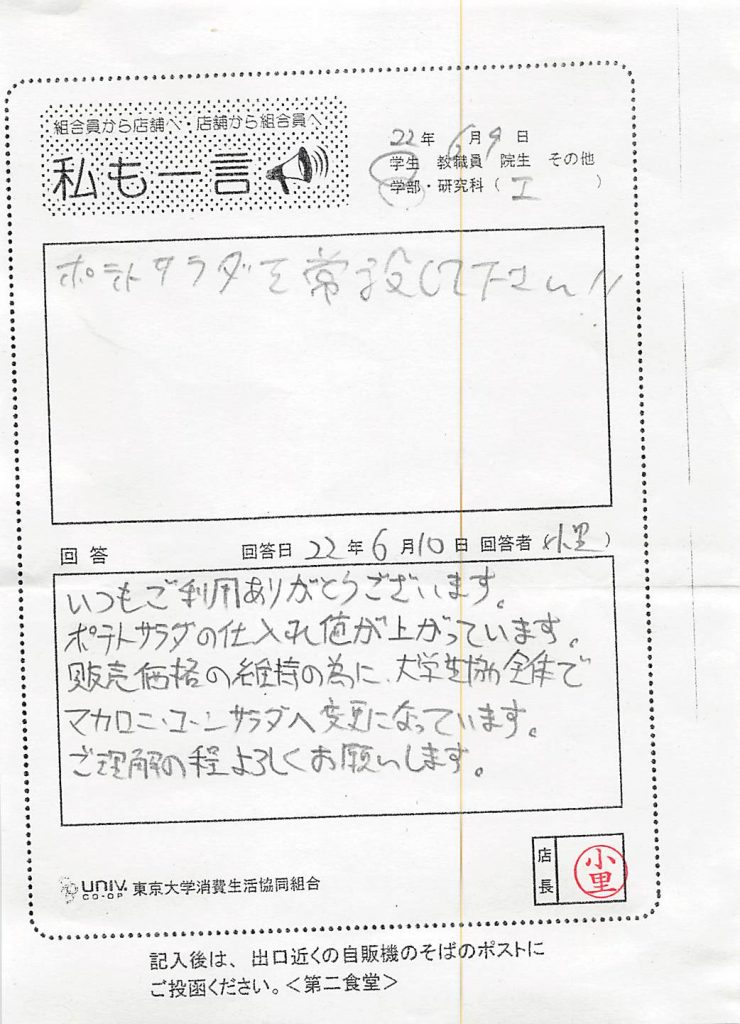 組合員から店舗へ・店舗から組合員へ
私も一言
22年6月9日
学生 教職員 院生 その他
学部・研究科(工)
ポテトサラダを常設して下さい!!
回答 回答日 22年6月10日 回答者(小里)
いつもご利用ありがとうございます。
ポテトサラダの仕入れ値が上がっています。
販売価格の維持の為に、大学生協全体で
マカロニ・コーンサラダへ変更になっています。
ご理解の程よろしくお願いします。
店長 小里
UNIV. CO-OP 東京大学消費生活協同組合
記入後は、出口近くの自販機のそばのポストに
ご投函ください。<第二食堂>